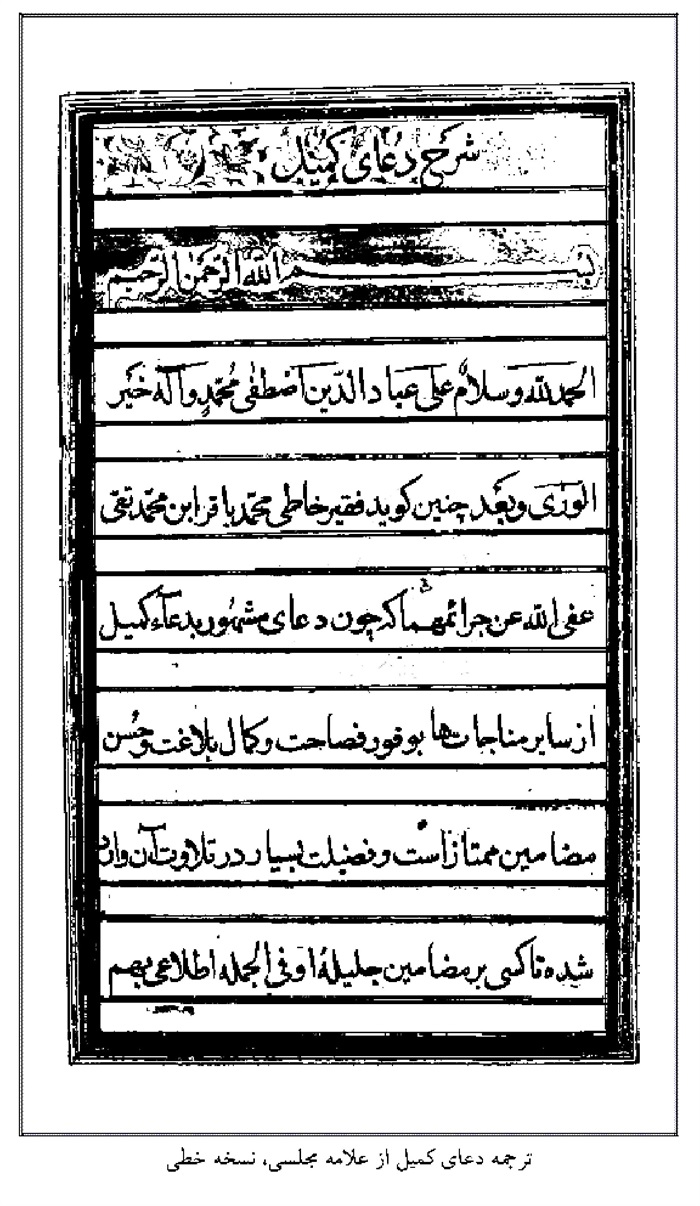 شرح دعای کمیل
بسم الله الرحمن الرحیم
الحمد لله وسلام علی عباد الذین اصطفی محمد وآله خیر
الوری وبعد چنین کوید فقیر خاطی محمد باقر ابن محمد تقی
عفی الله عن جرائمهما که چون دعای مشهور بدعاء کمیل
از سایر مناجات ها بوفور فصاحت وکمال بلاغت وحسن
مضامین ممتاز است وفضیلت بسیار در تلاوت آن وارد
شده تا کسی بر مضامین جلیلهٔ او فی الجمله اطلاعی بهم
ترجمه دعای کمیل از علامه مجلسی، نسخه خطی